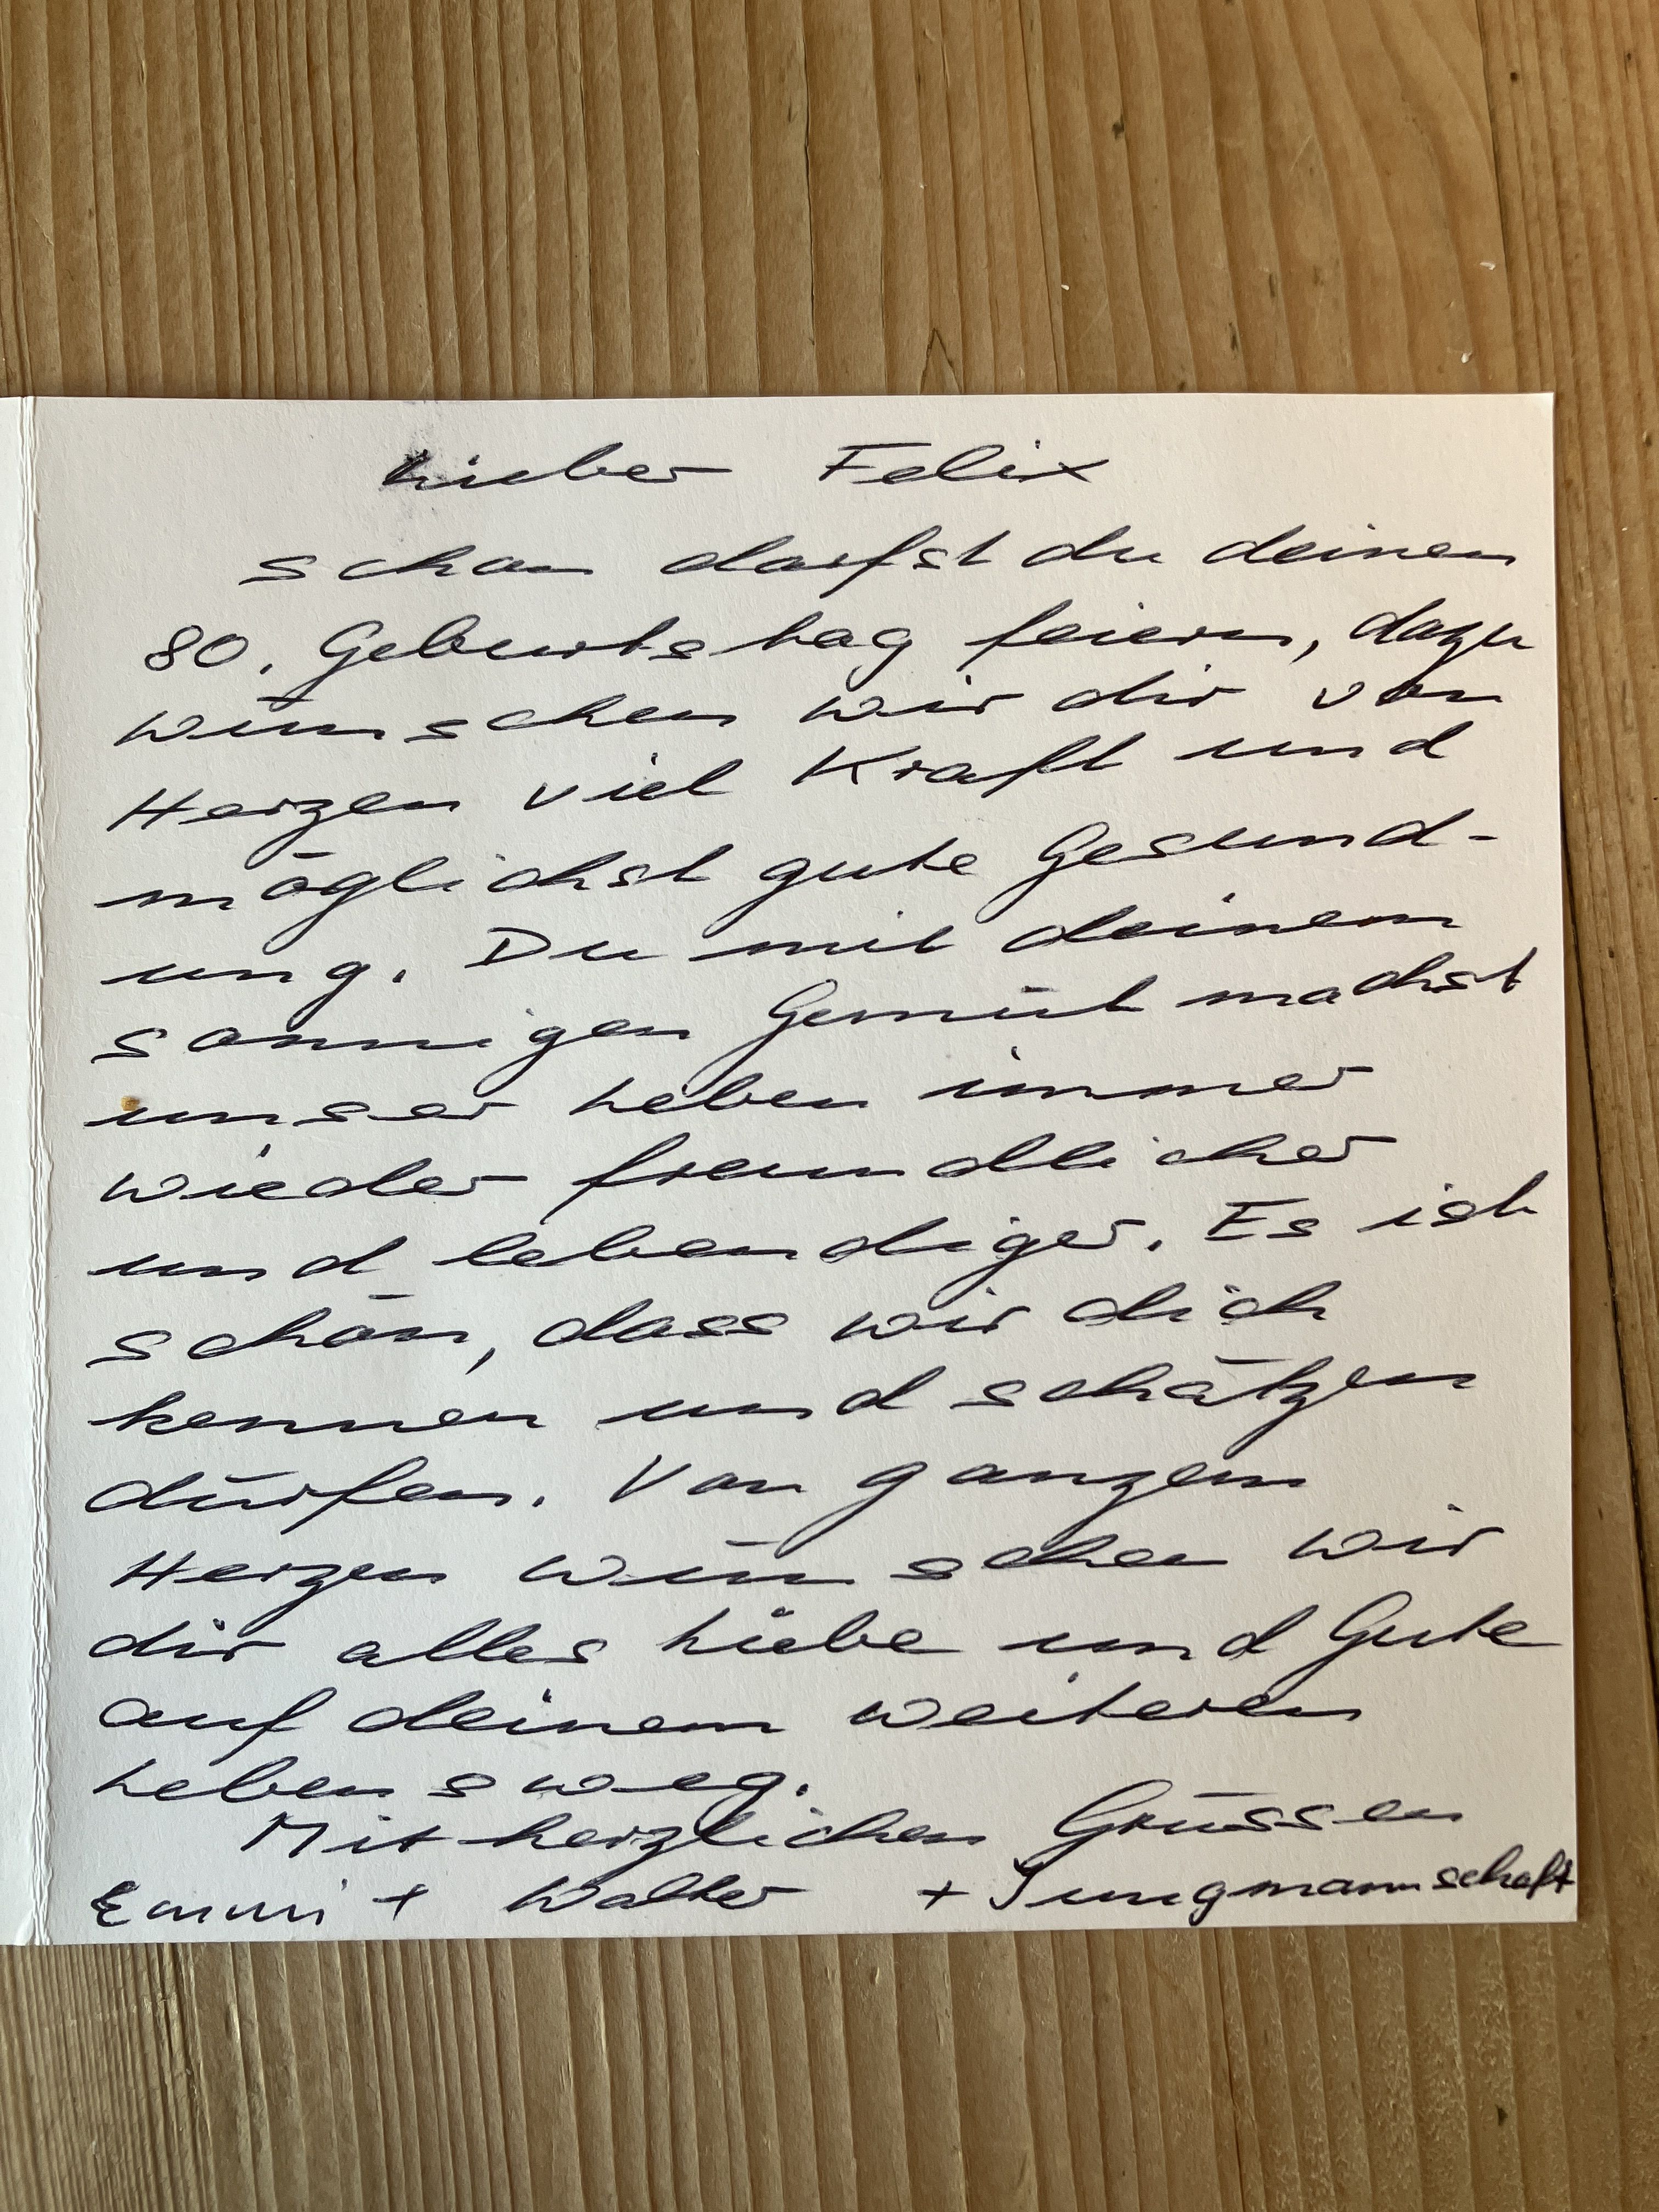 Lieber Felix
schon darfst du deinen
80. Geburtstag feiern, dazu
wünschen wir dir von
Herzen viel Kraft und
möglichst gute Gesund-
ung. Du mit deinem
sonnigen Gemüt machst
unser Leben immer
wieder freundlicher
und lebendiger. Es ist
schön, dass wir dich
kennen und schätzen
dürfen. Von ganzem
Herzen wünschen wir
dir alles Liebe und Gute
auf deinem weiteren
Lebensweg.
Mit herzlichen Grüssen
Emmi + Walter + Jungmannschaft